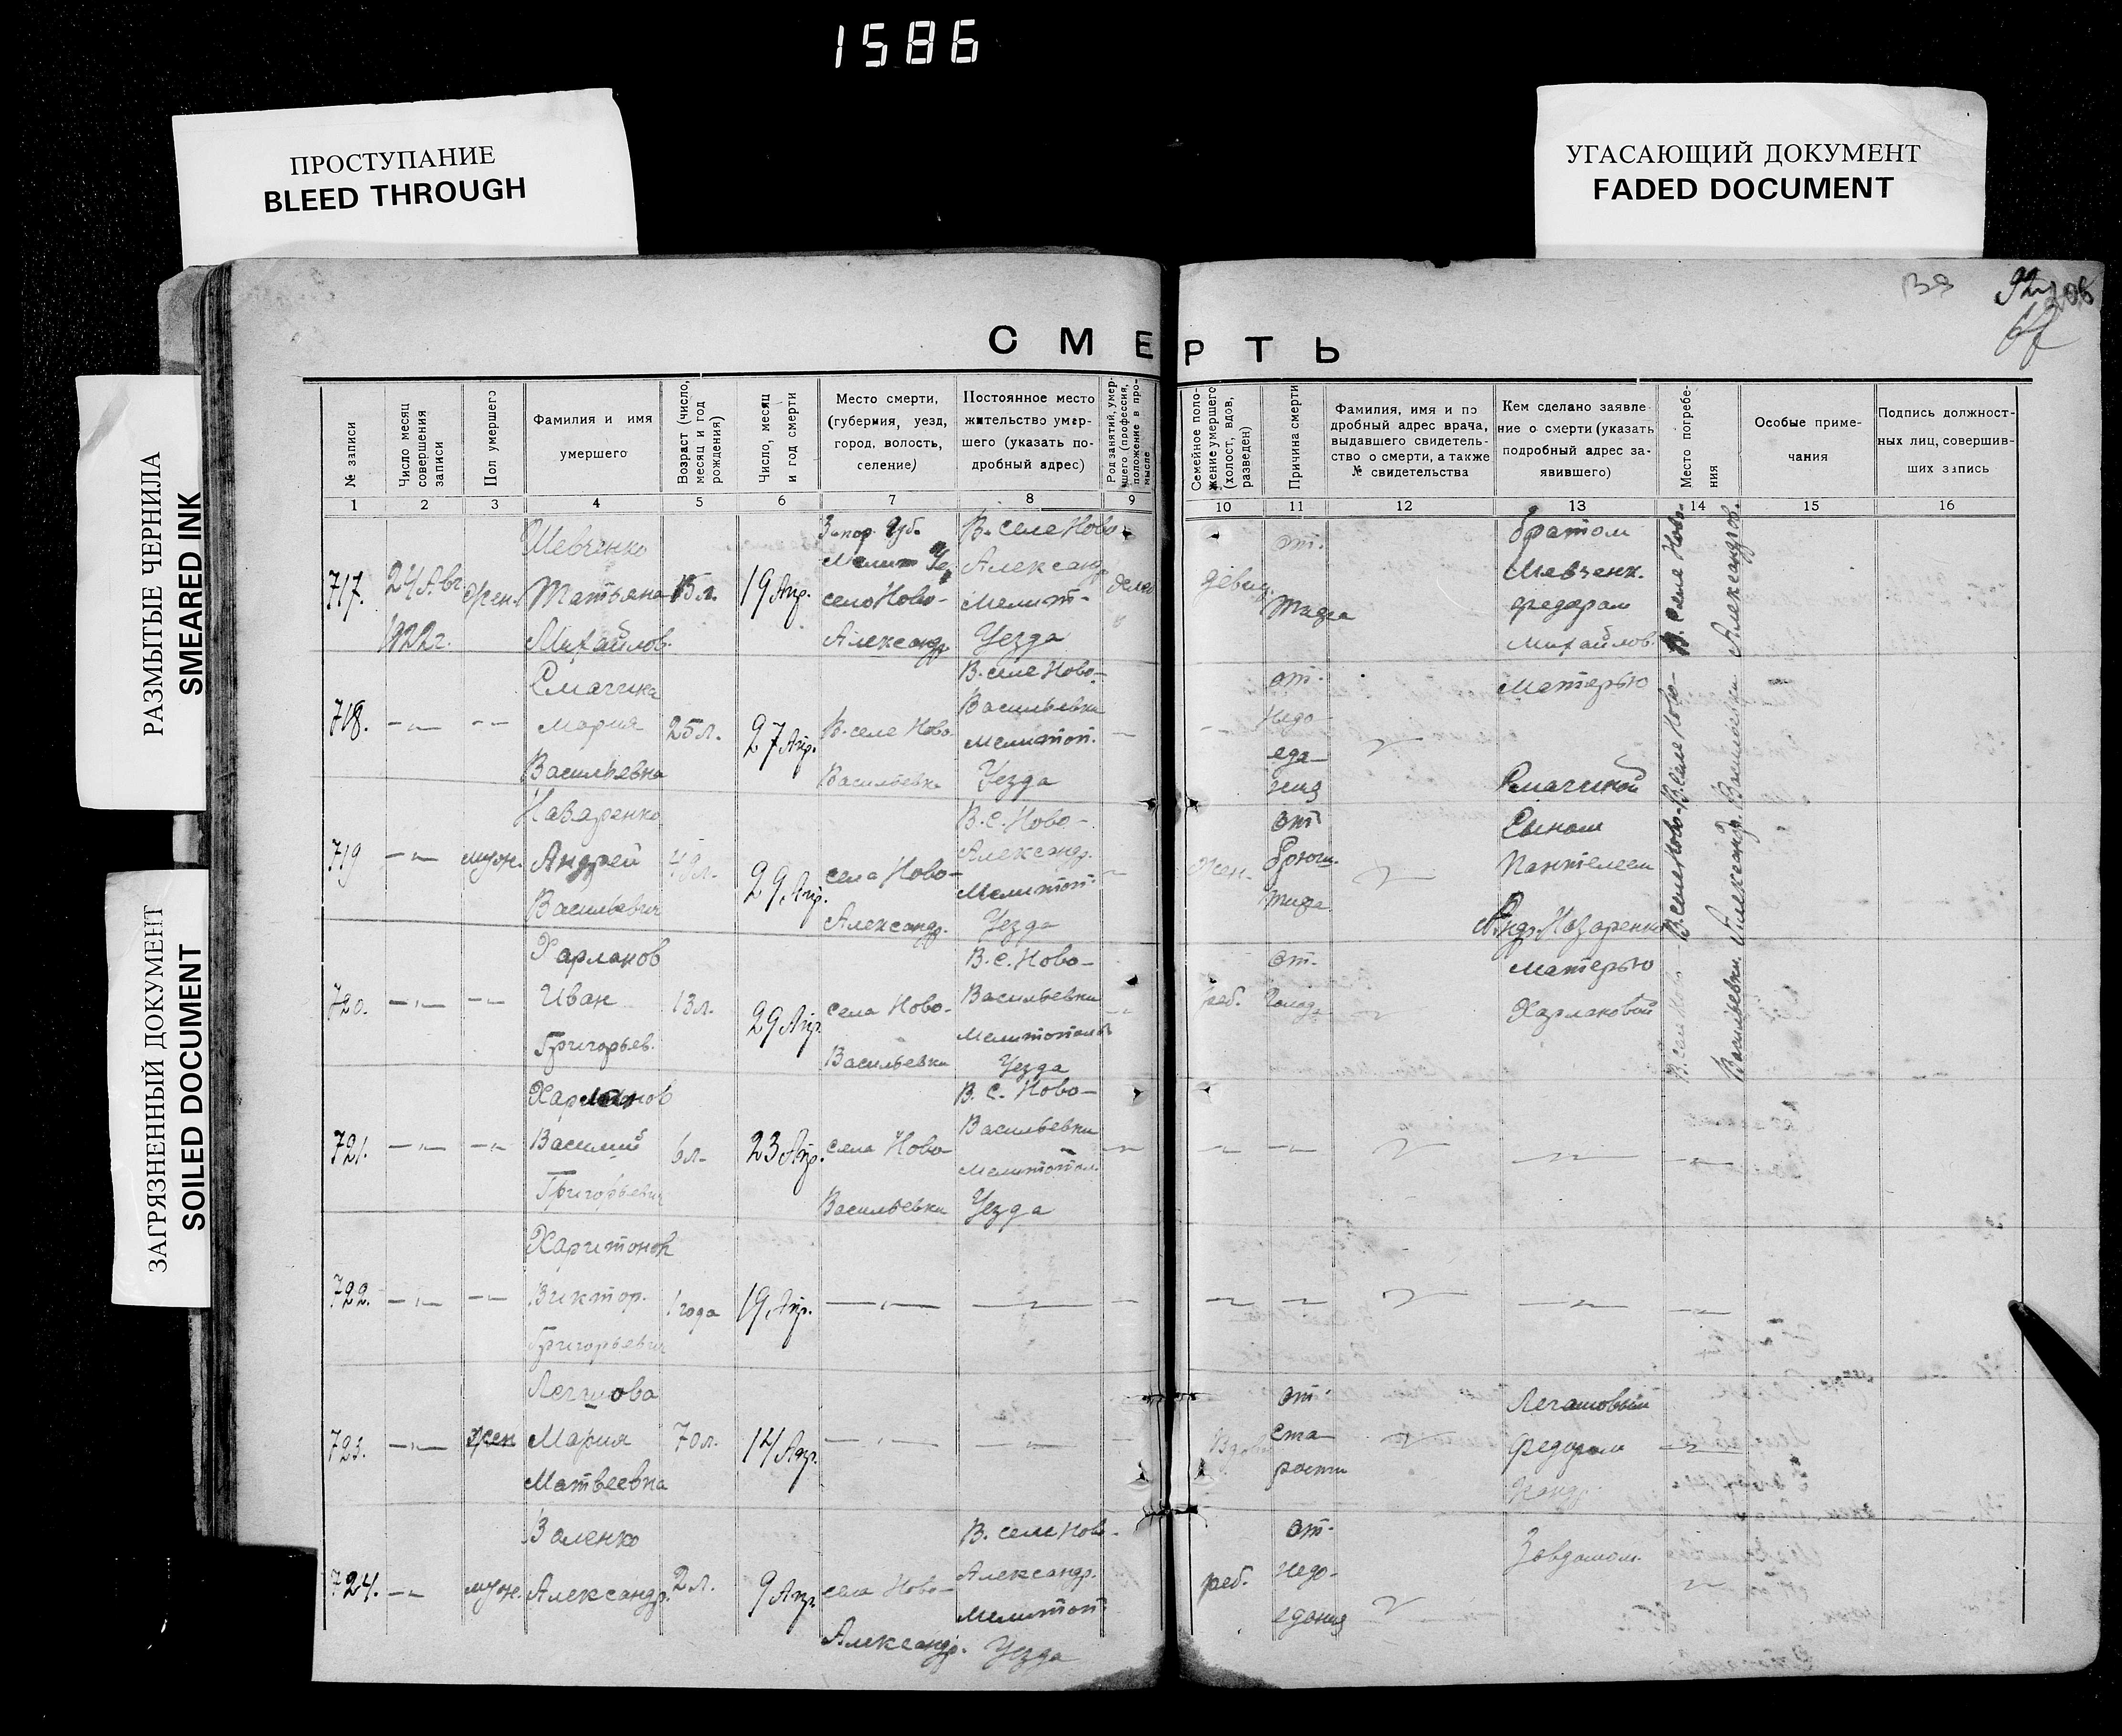 1586
ПРОСТУПАНИЕ
BLEED THROUGH
УГАСАЮЩИЙ ДОКУМЕНТ
FADED DOCUMENT
РАЗМЫТЫЕ ЧЕРНИЛА
SMEARED INK
ЗАГРЯЗНЕННЫЙ ДОКУМЕНТ
SOILED DOCUMENT
СМЕРТЬ
№ записи
Число, месяц совершения записи
Пол умершего
Фамилия и имя
умершего
Возраст (число, месяц и год рождения)
Число, месяц и год смерти
Место смерти,
(губерния, уезд,
город, волость,
селение)
Постоянное место
жительство умер-
шего (указать по-
дробный адрес)
Род занятий, умер-
шего (профессия,
положение в про-
мысле
Семейное поло-
жение умершего
(холост, вдов,
разведен)
Причина смерти
Фамилия, имя и по
дробный адрес врача,
выдавшего свидетель-
ство о смерти, а также
№ свидетельства
Кем сделано заявле
ние о смерти (указать
подробный адрес за-
явившего)
Место погребе-
ния
Особые приме-
чания
Подпись должност-
ных лиц, совершив-
ших запись
1 2 3 4 5 6 7 8 9 10 11 12 13 14 15 16
717.
24 Авг.
1922 г.
жен.
Шевченко
Татьяна
Михайлов.
15 л.
19 Апр.
Запор. Губ.
Мелит Уе
село Ново-
Александр.
В. селе Ново
Александ
Мелит-
Уезда
девиц.
от.
Тифа
братом
Шевченк.
Федором
Михайлов.
В. селе Ново-
Александров.
718.
— " —
— " —
Смагина
Мария
Васильевна
25 л.
27 Апр.
В. селе Ново
Васильевке
В. селе Ново-
Васильевки
Мелитоп.
Уезда
от.
Недо
еда-
ния
Матерью
Смагиной
В. селе Ново-
Васильевки
719
— " —
муж.
Назаренко
Андрей
Васильевич
49 л.
29 Апр.
села Ново-
Александр.
В. С. Ново-
Александр.
Мелитоп.
Уезда
жен.
от
брюш.
тифа
Сыном
Пантелеем
Андр. Назаренко
В. селе Ново-
Александр.
720.
— " —
— " —
Харланов
Иван
Григорьев.
13 л.
29 Апр
села Ново-
Васильевки
В. С. Ново-
Васильевки
Мелитополь
Уезда
реб.
от.
Голода
Матерью
Харлановой
В. селе Ново
Васильевки.
721.
— " —
— " —
Харланов
Василий
Григорьевич
6 л.
23 Апр.
села Ново
Васильевки
В. С. Ново-
Васильевки
Мелитопол.
Уезда
722.
— " —
— " —
Харитонов
Виктор.
Григорьевич
1 года
19 Апр.
— " —
723.
— " —
жен
Мария
Матвеевна
70 л.
14 Апр.
— " —
— " —
Вдова
от.
Ста-
рости
Федором
724.
— " —
муж.
Заленко
Александр.
2 л.
9 Апр
села Ново-
Александр.
В. селе Ново-
Александр.
Мелитоп.
Уезда
реб.
от.
недо-
едания
Завдомом.